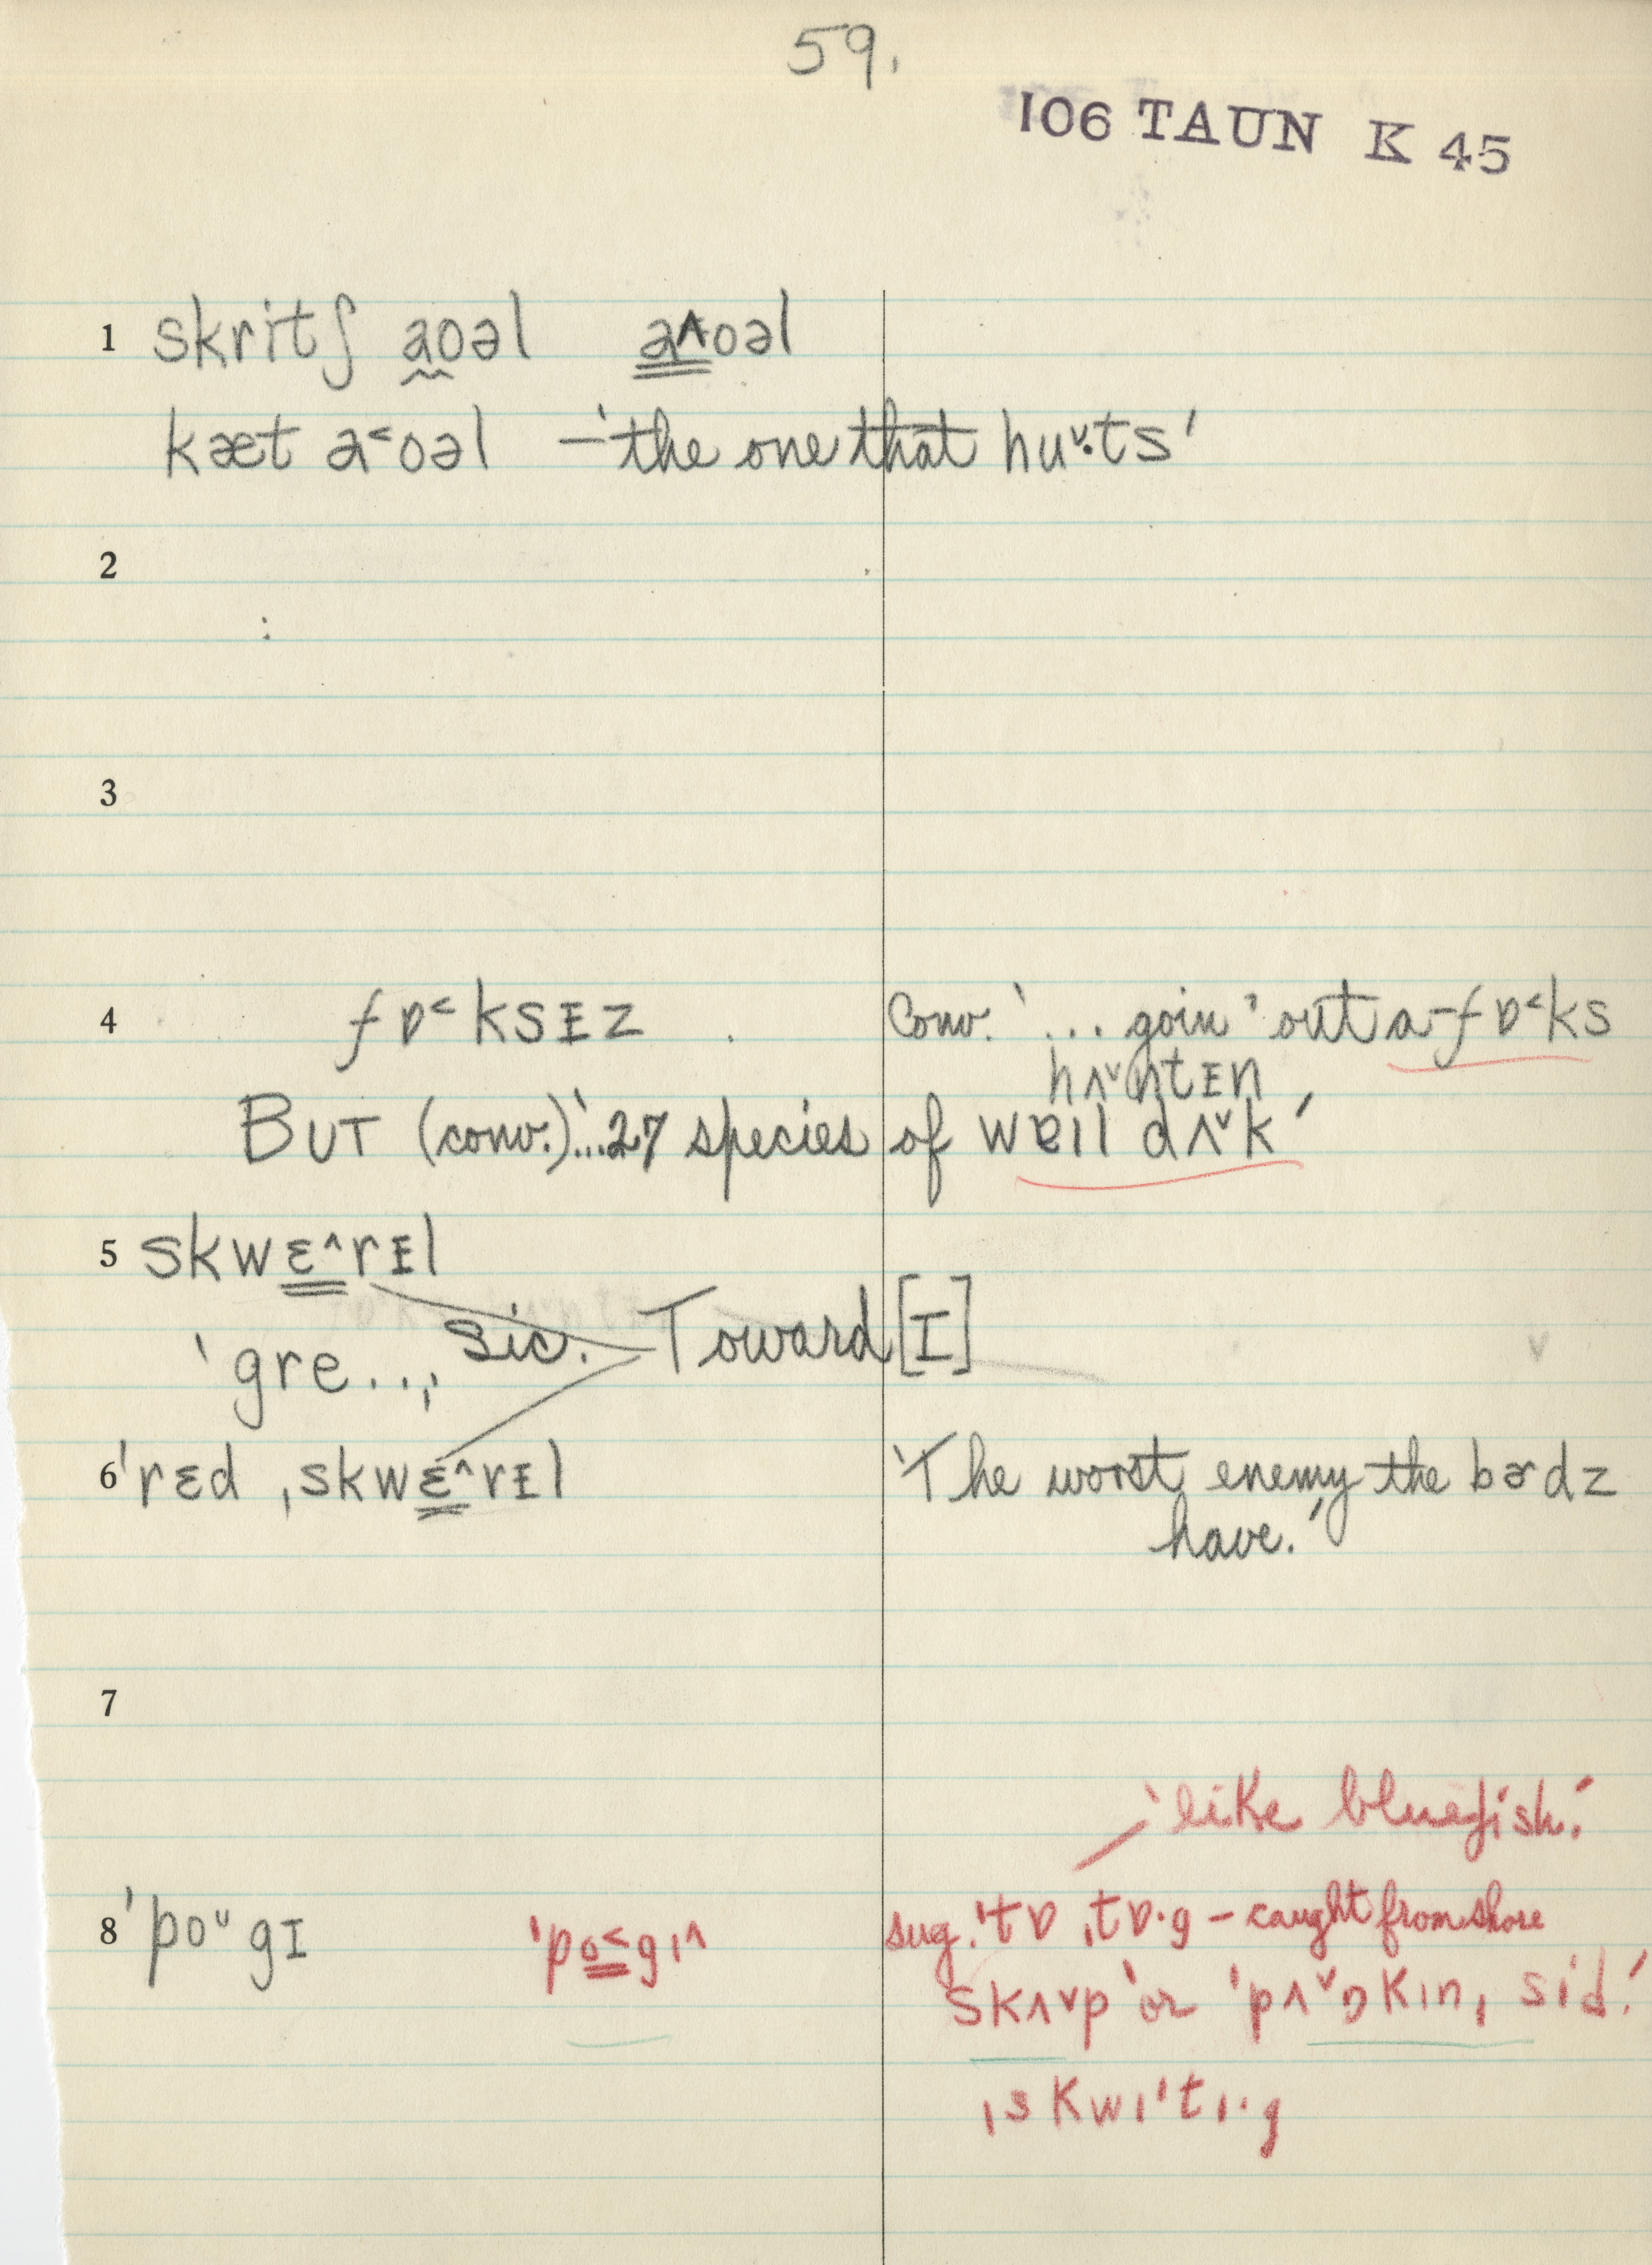 59.
106 TAUN K 45
1 skritʃ aoəl a^oəl
kæt a˂oəl – 'the one that huˇ·ts'
2
:
3
4 fɒ˂ksɪz . Conv. '... goin' out a-fɒ˂ks
hʌˇntɪn
BUT (conv.) '...27 species of wɐɪl dʌˇk'
5 skwɛ^rɪl
'gre..,' sic. Toward [I]
6 'rɛd ˌskwɛ^rɪl 'The worst enemy the bɚdz
have.'
7
'like bluefish.'
8 'poᵘgɪ 'po˂gɪ^ sug. 'tɒˌtɒ·g – caught from shore
skʌˇp 'or 'pʌˇŋkɪnˌsid.'
ˌskwɪ'tɪ·g